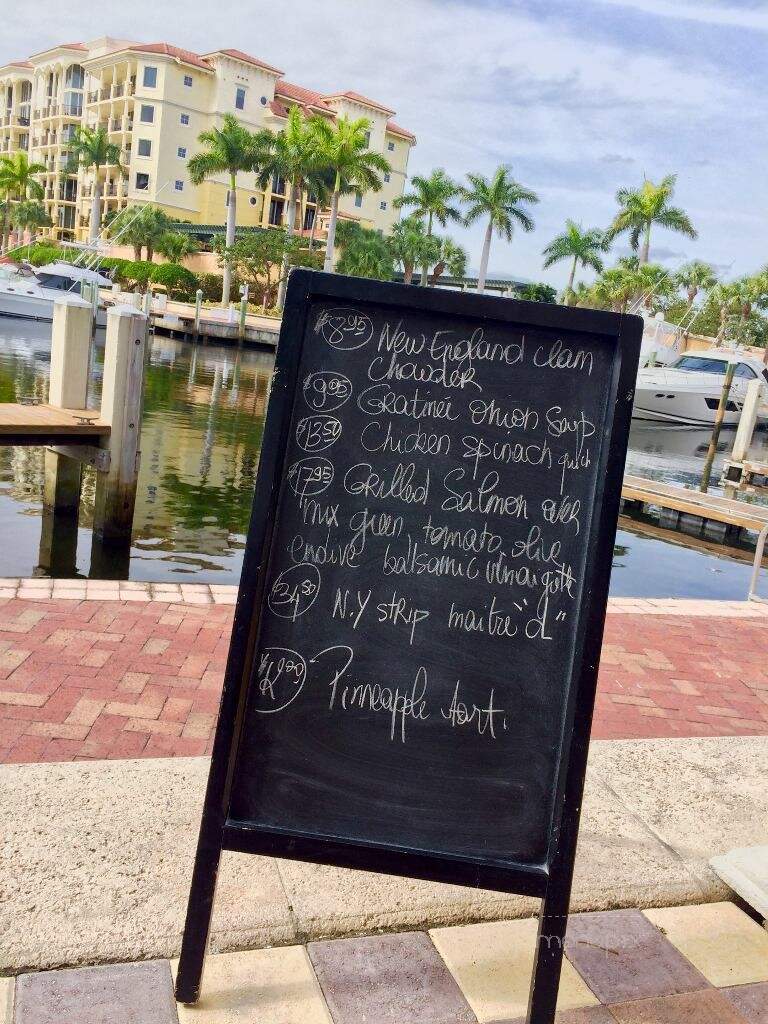 $8.95 New England clam
chowder
$9.95 Gratineé onion soup
$13.50 Chicken spinach quich
$17.95 Grilled Salmon over
mix green, tomato, olive
endive balsamic vinaigette
$34.50 N.Y strip maitre "d"
Pinneapple tart.